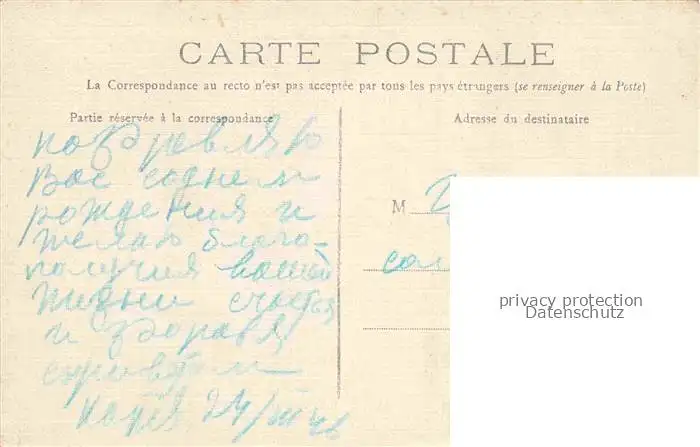 CARTE POSTALE
La Correspondance au recto n'est pas acceptée par tous les pays étrangers (se renseigner à la Poste)
Partie réservée à la correspondance
Adresse du destinataire
поздравляю
Вас соднем
рождения и
желаю благо-
получия вашей
жизни счастья
и здоровя
24/III 46
M
privacy protection
Datenschutz